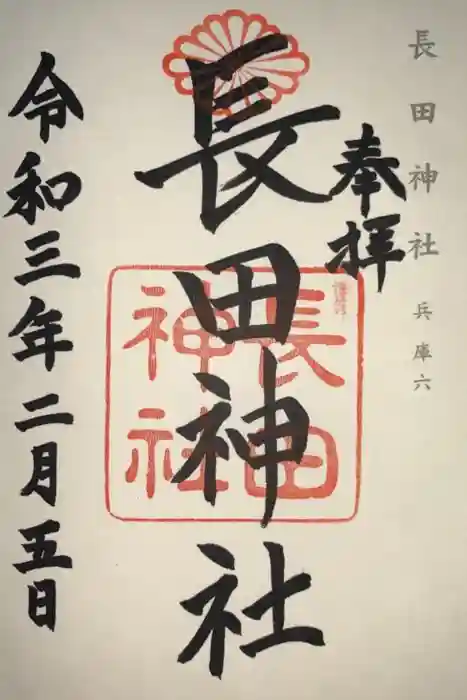 長田神社 兵庫六
奉拝
長田神社
長田
神社
令和三年二月五日